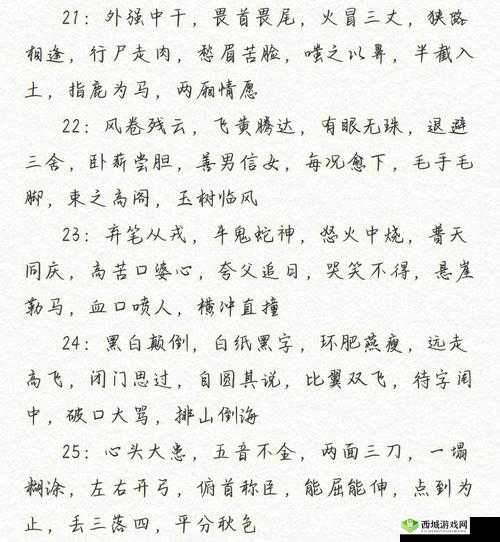 21：外强中干，畏首畏尾，火冒三丈，狭路
相逢，行尸走肉，愁眉苦脸，嗤之以鼻，半截入
土，指鹿为马，两厢情愿
22：风卷残云，飞黄腾达，有眼无珠，退避
三舍，卧薪尝胆，善男信女，每况愈下，毛手毛
脚，束之高阁，玉树临风
23：弃笔从戎，牛鬼蛇神，怒火中烧，普天
同庆，高苦口婆心，夸父追日，哭笑不得，悬崖
勒马，血口喷人，横冲直撞
24：黑白颠倒，白纸黑字，环肥燕瘦，远走
高飞，闭门思过，自圆其说，比翼双飞，待字闺
中，破口大骂，排山倒海
25：心头大患，五音不全，两面三刀，一塌
糊涂，左右开弓，俯首称臣，能屈能伸，点到为
止，丢三落四，平分秋色
西城游戏网